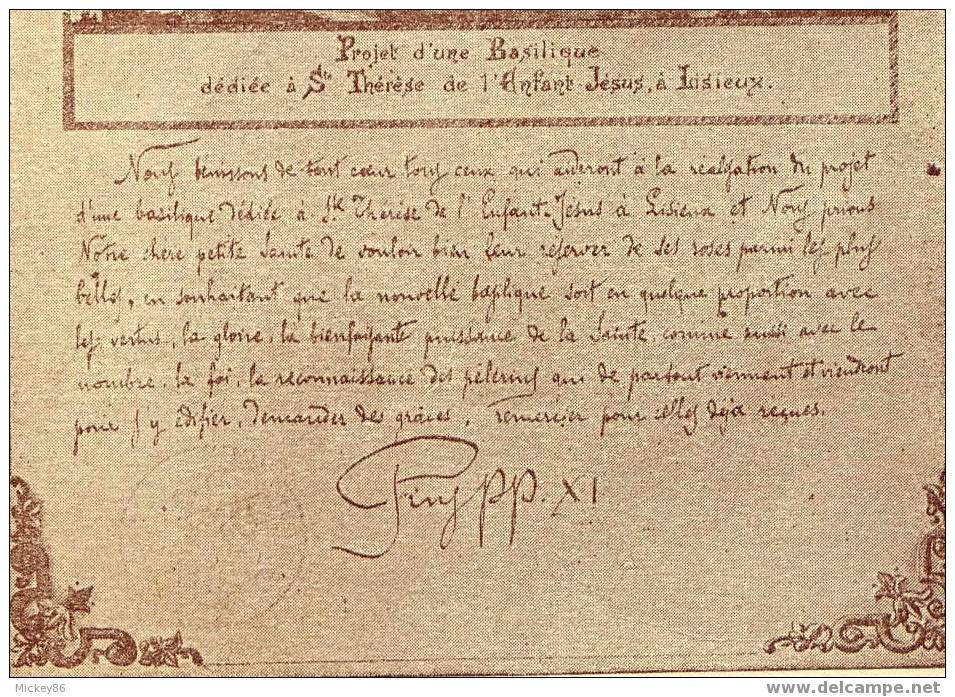 Projet d'une Basilique
dédiée à Ste Thérèse de l'Enfant-Jésus, à Lisieux.
Nous bénissons de tout cœur tous ceux qui aideront à la réalisation du projet
d'une basilique dédiée à Ste Thérèse de l'Enfant-Jésus à Lisieux et Nous prions
Notre chère petite Sainte de vouloir bien leur réserver de ses roses parmi les plus
belles, en souhaitant que la nouvelle basilique soit en quelque proportion avec
les vertus, la gloire, la bienfaisante puissance de la Sainte, comme aussi avec le
nombre, la foi, la reconnaissance des pèlerins qui de partout viennent et viendront
pour s'y édifier, demander des grâces, remercier pour celles déjà reçues.
Pius PP. XI
Mickey86
http://www.delcampe.net